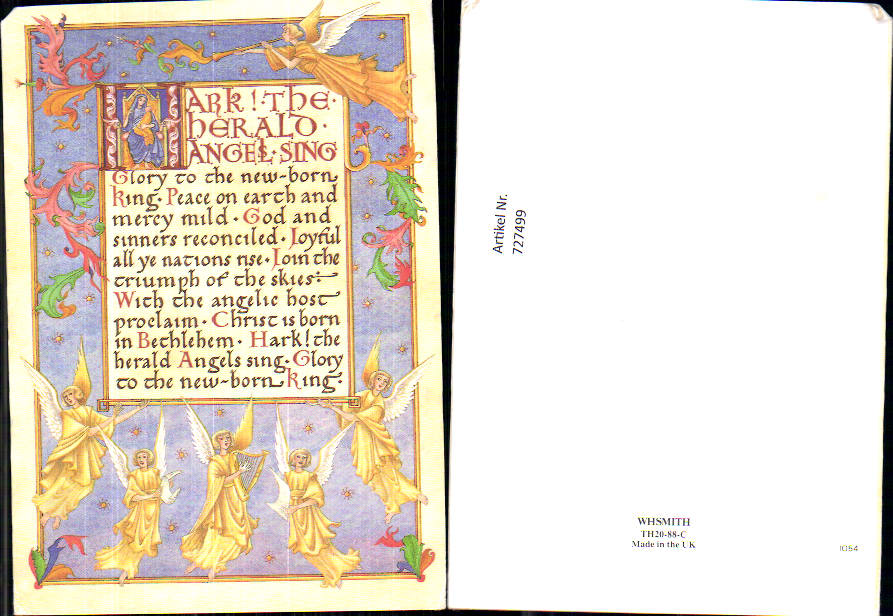 HARK! · THE ·
HERALD ·
ANGEL · SING
Glory to the new-born
King · Peace on earth and
mercy mild · God and
sinners reconciled · Joyful
all ye nations rise · Join the
triumph of the skies :
With the angelic host
proclaim · Christ is born
in Bethlehem · Hark! the
herald Angels sing · Glory
to the new-born King ·
Artikel Nr.
727499
WHSMITH
TH20-88-C
Made in the UK
1054